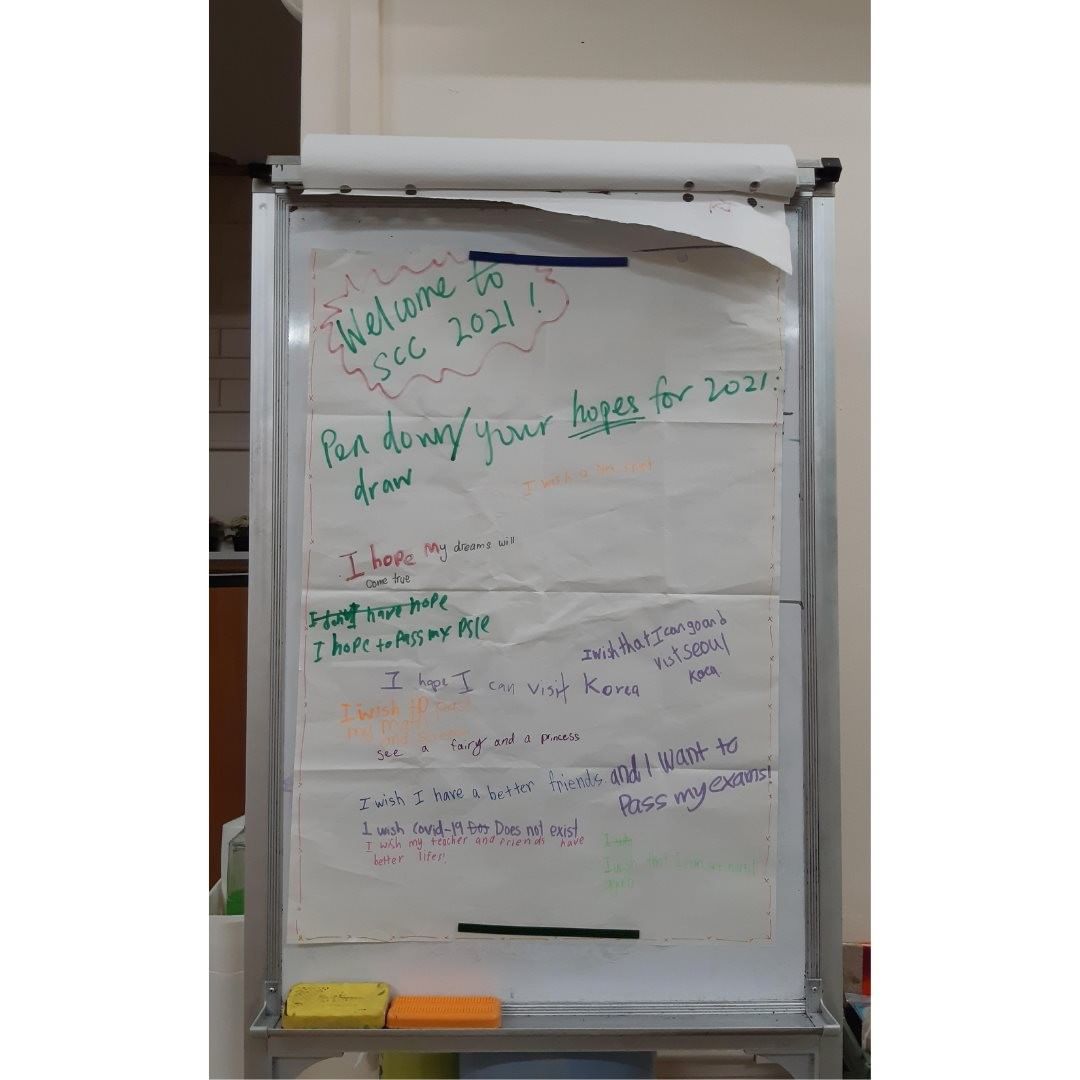 Welcome to
SCC 2021!
Pen down/ your hopes for 2021:
draw
I wish a
I hope my dreams will
come true
I don't have hope
I hope to pass my PSLE
I wish that I can go and
visit seoul
Korea
I hope I can visit Korea
I wish to pass
my Math
and
see a fairy and a princess
I wish I have a better friends. and I want to
Pass my exams!
I wish covid-19 Does not exist
I wish my teacher and friends have
better lifes!
I wish that I can